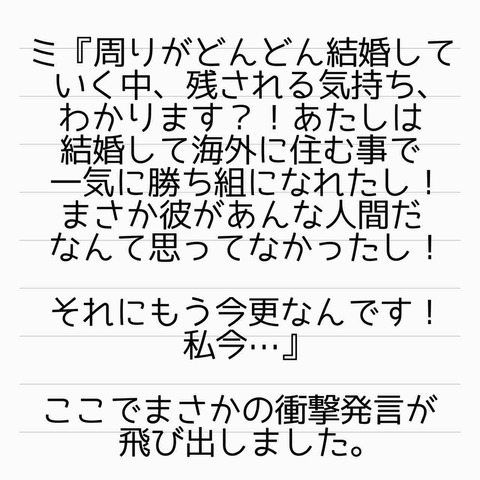 ミ『周りがどんどん結婚して
いく中、残される気持ち、
わかります？！あたしは
結婚して海外に住む事で
一気に勝ち組になれたし！
まさか彼があんな人間だ
なんて思ってなかったし！
それにもう今更なんです！
私今…』
ここでまさかの衝撃発言が
飛び出しました。